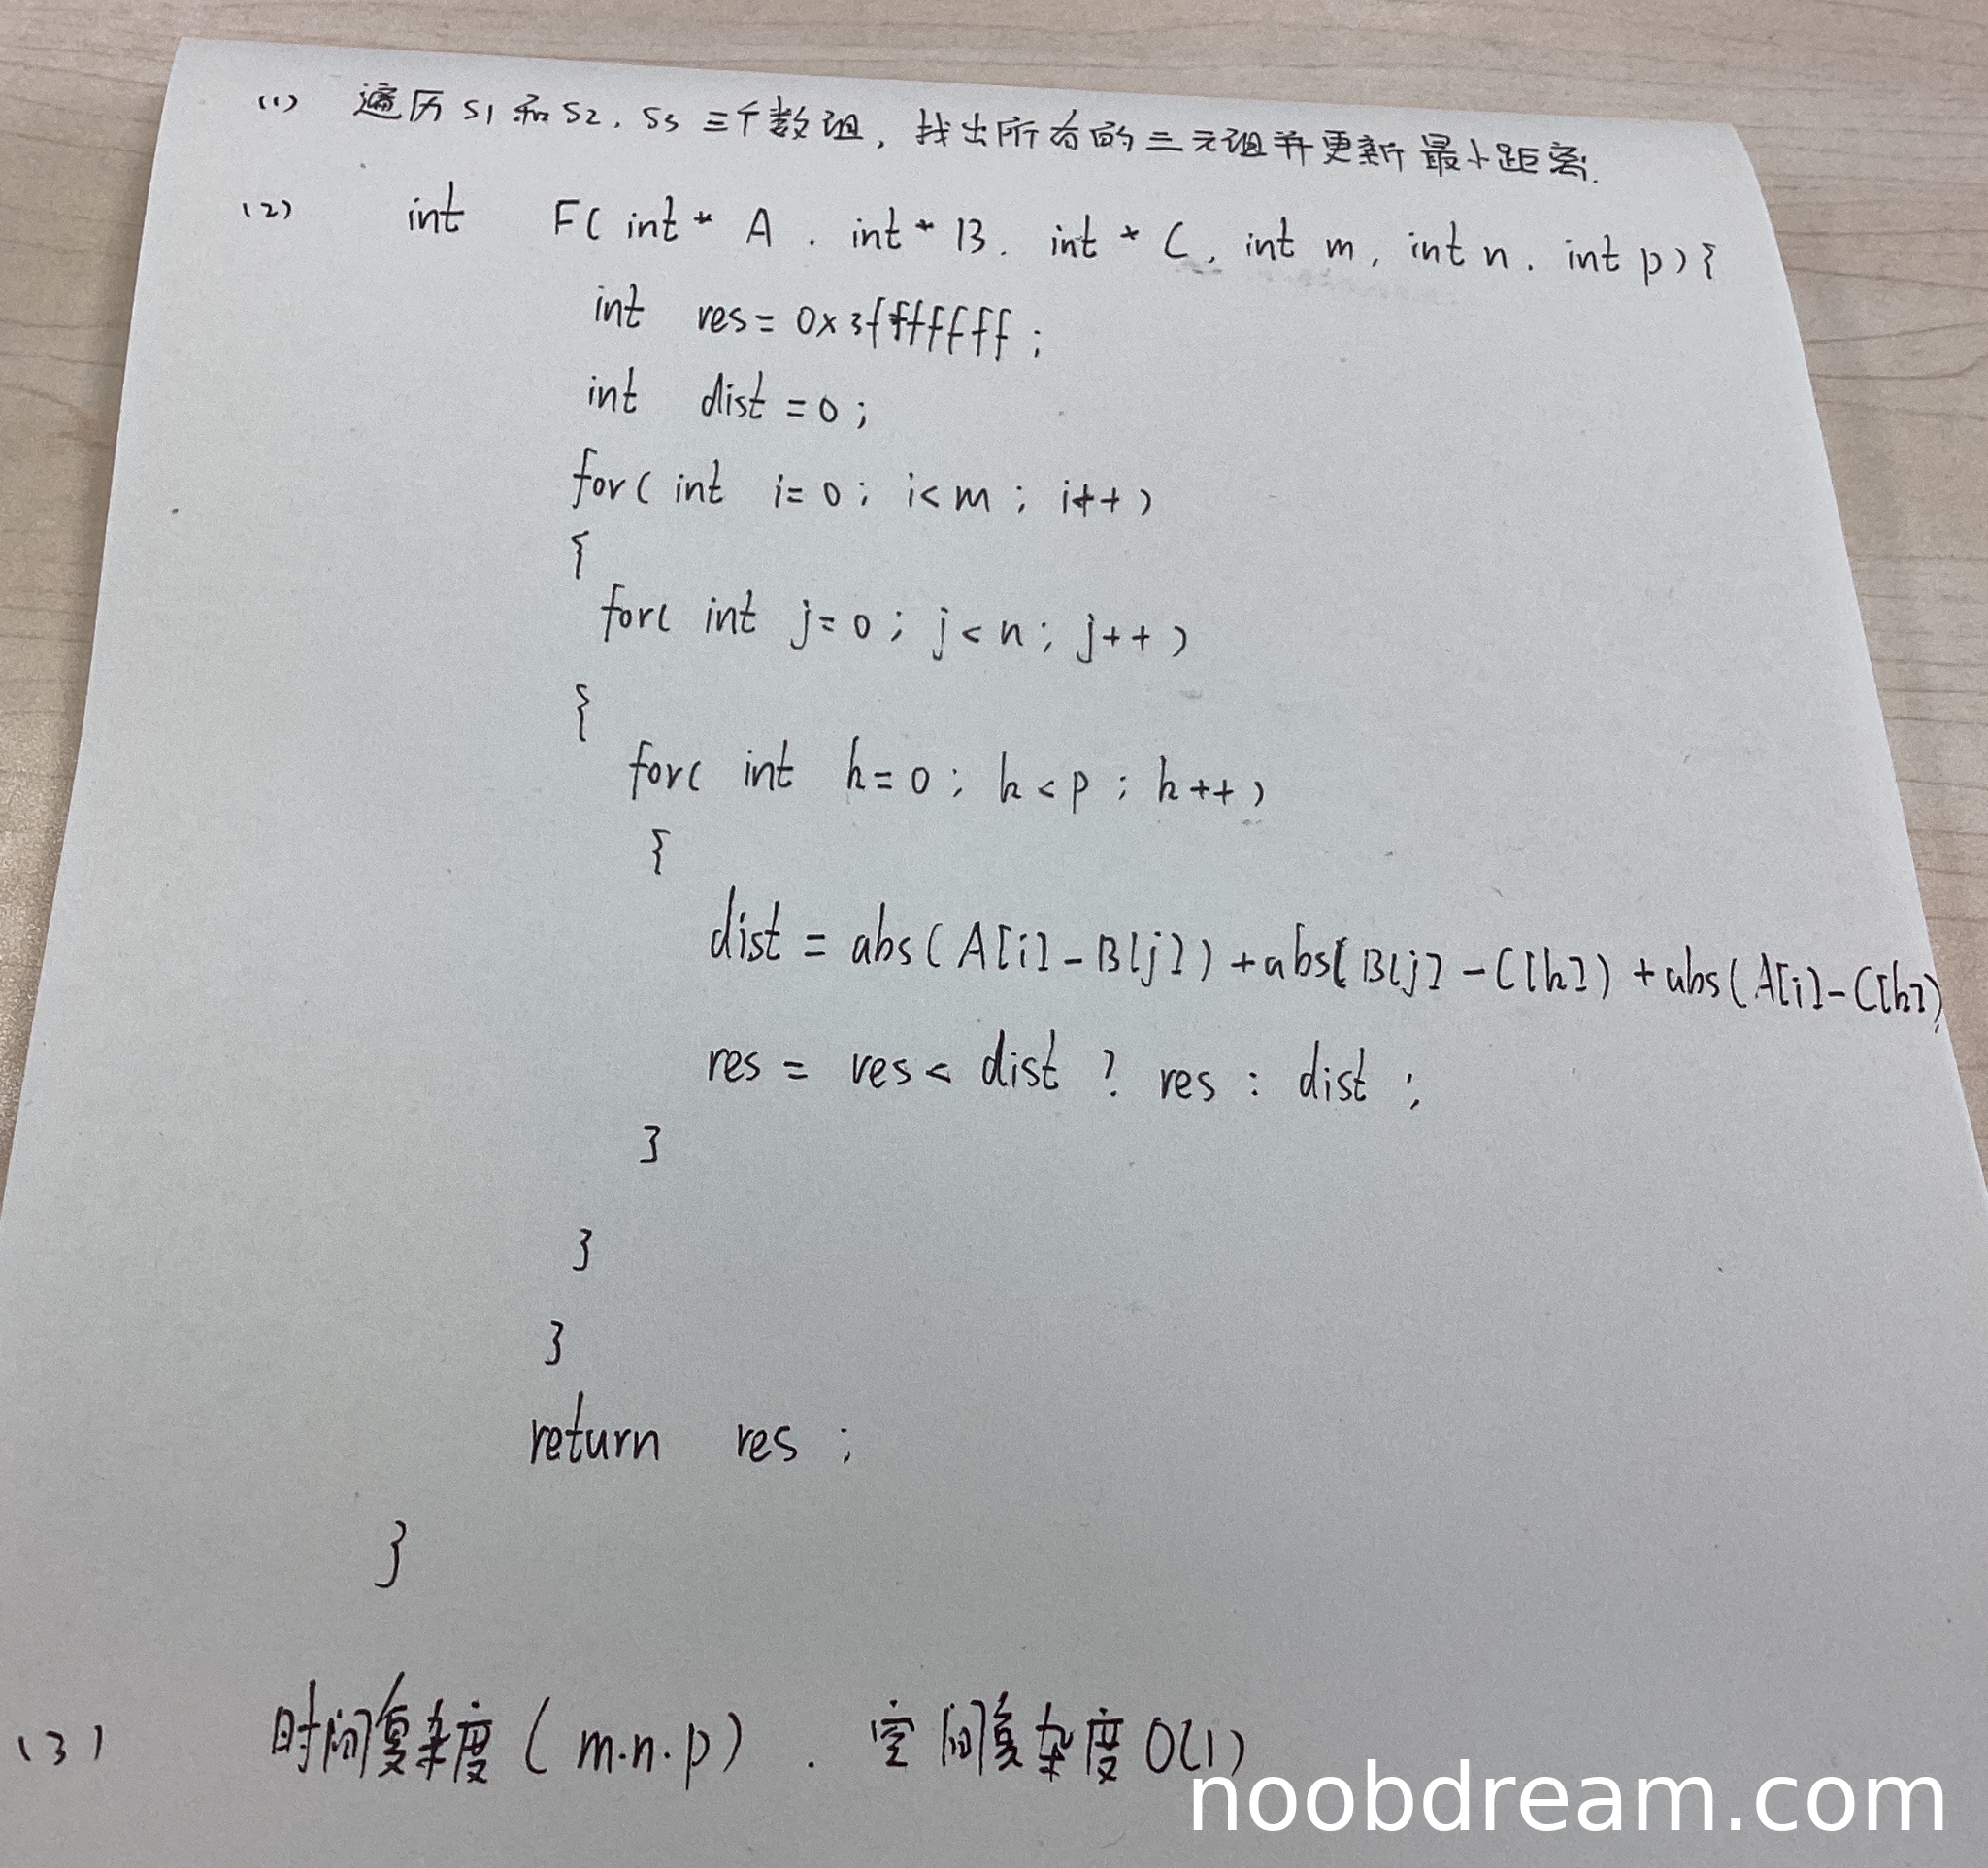 (1) 遍历 S1 和 S2, S3 三个数组, 找出所有的三元组并更新最小距离.
(2) int F( int * A , int * B , int * C , int m , int n , int p ) {
int res = 0x3fffffff ;
int dist = 0 ;
for( int i = 0 ; i < m ; i++ )
{
for( int j = 0 ; j < n ; j++ )
{
for( int k = 0 ; k < p ; k++ )
{
dist = abs( A[i] - B[j] ) + abs( B[j] - C[k] ) + abs( A[i] - C[k] )
res = res < dist ? res : dist ;
}
}
}
return res ;
}
(3) 时间复杂度 ( m·n·p ) . 空间复杂度 O(1)
noobdream.com